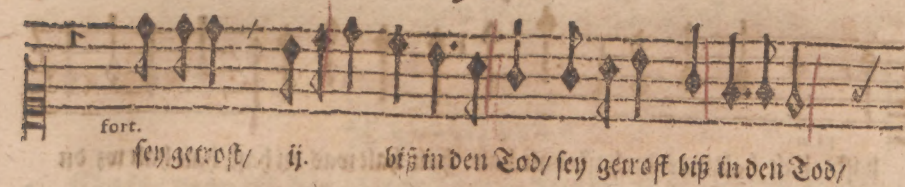 fort.
ſey getroſt/ ij. biß in den Tod/ ſey getroſt biß in den Tod/